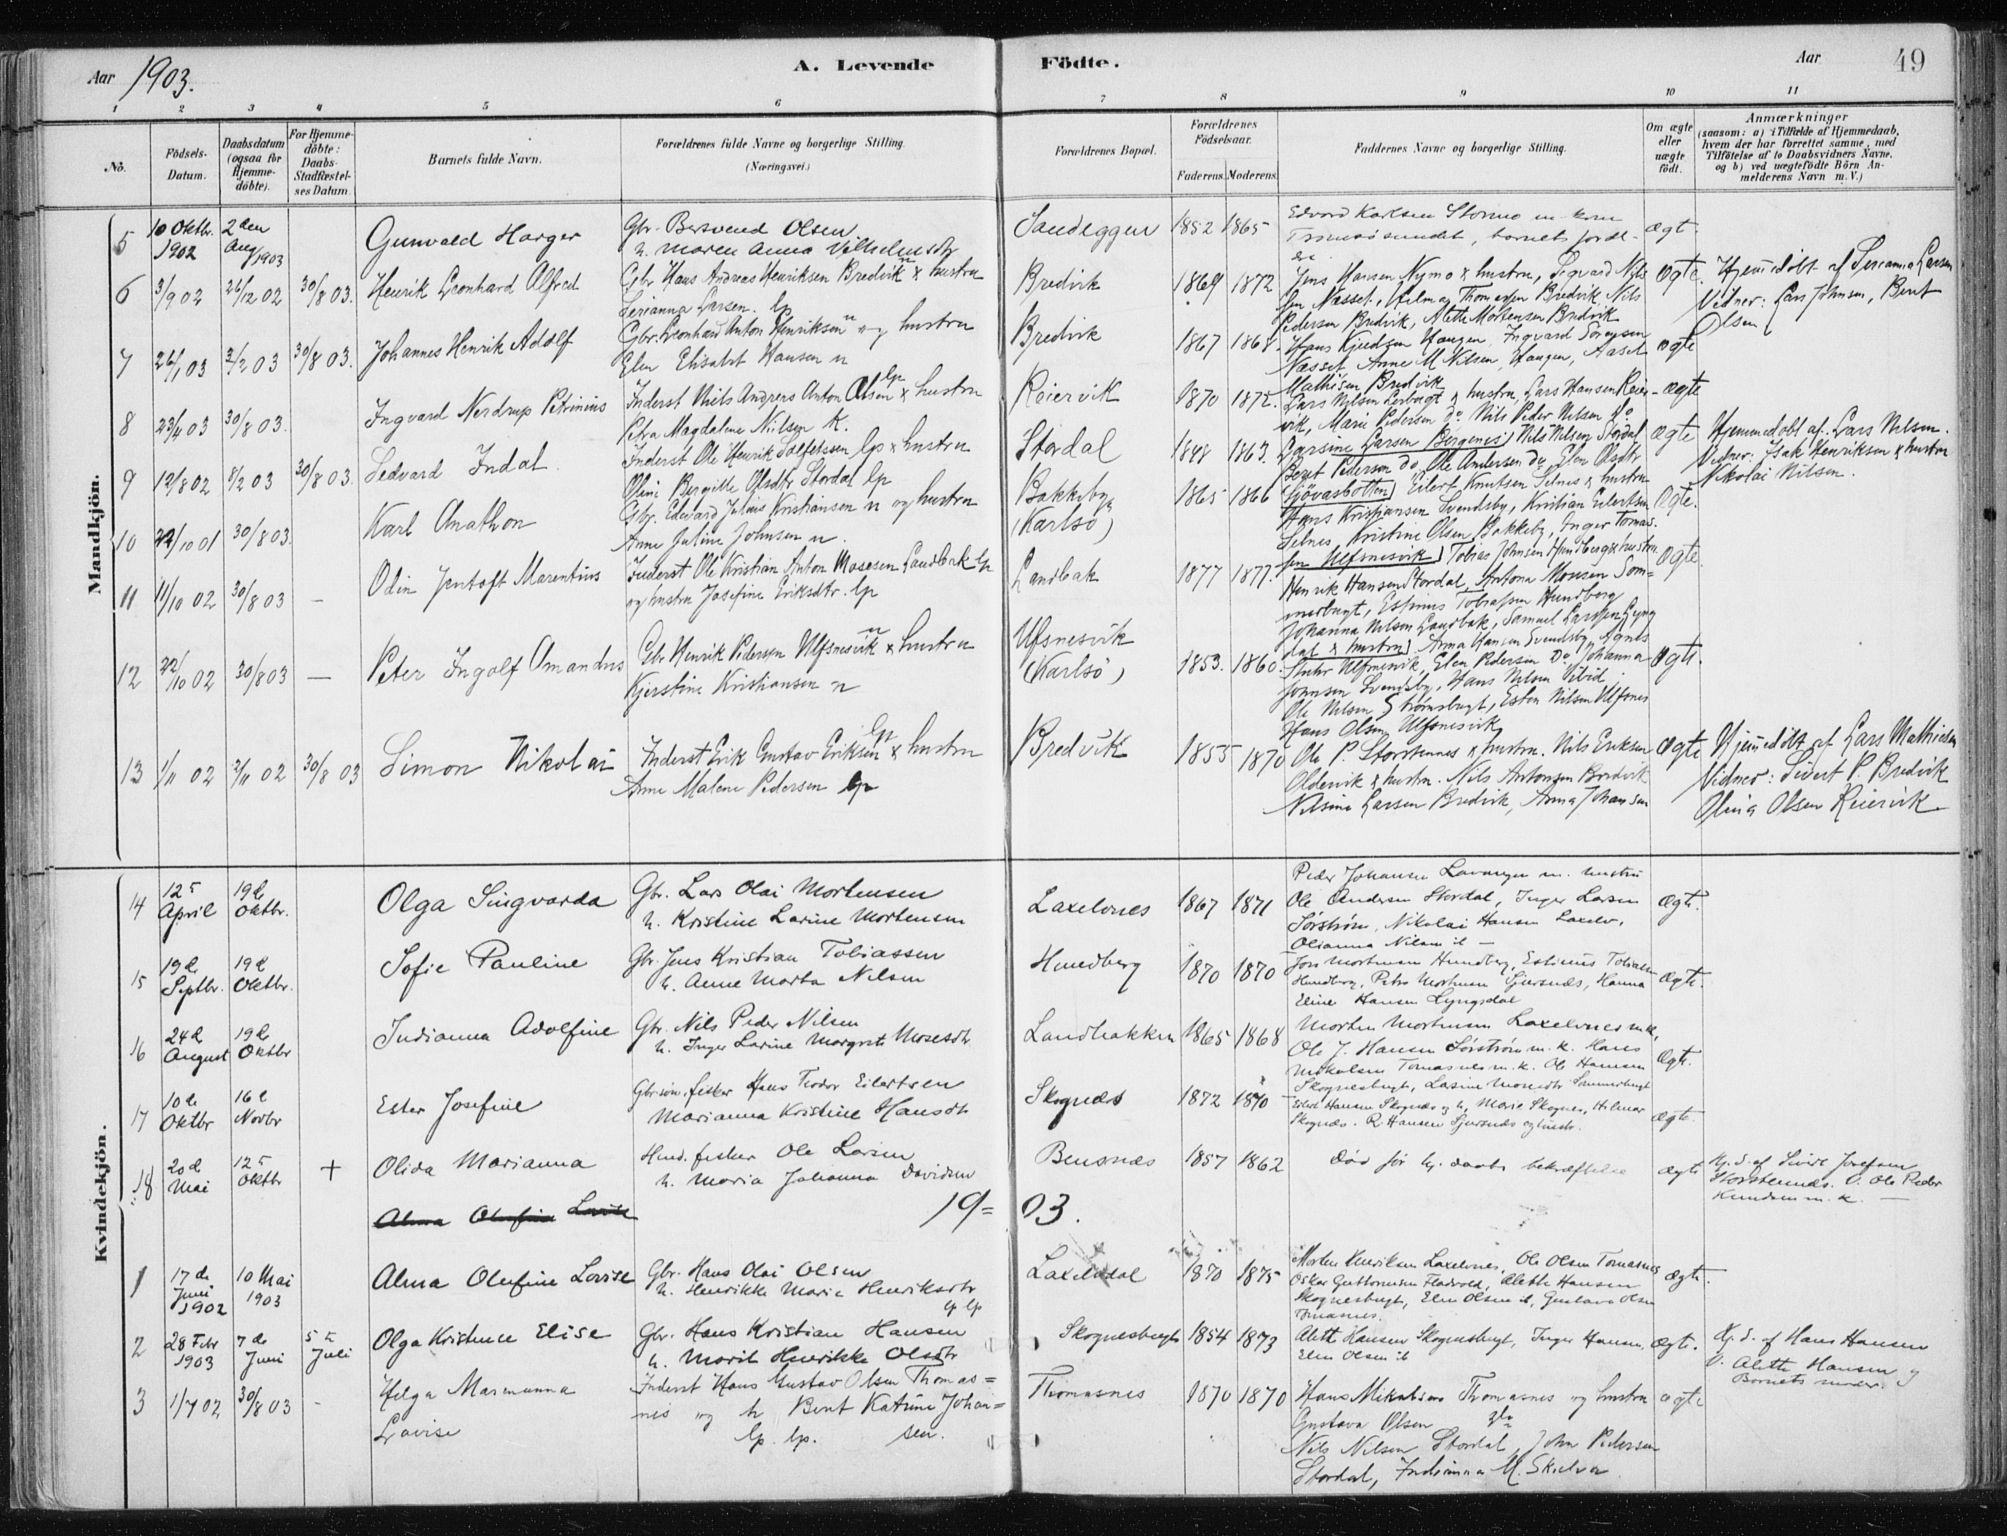 Aar 1903.
A. Levende Födte.
Aar 49
1 2 3 4 5 6 7 8 9 10 11
No.
Födsels-Datum.
Daabsdatum (ogsaa for Hjemme-döbte).
For Hjemme-döbte: Daabs-Stadfæstel-ses Datum.
Barnets fulde Navn.
Forældrenes fulde Navne og borgerlige Stilling.
(Næringsvei.)
Forældrenes Bopæl.
Forældrenes Födselsaar.
Faderens. Moderens.
Faddernes Navne og borgerlige Stilling.
Om ægte eller uægte födt.
Anmærkninger
(saasom: a) i Tilfælde af Hjemmedaab, hvem der har forrettet samme, med Tilföielse af to Daabsvidners Navne, og b) ved uægtefödte Börn An-melderens Navn m. V.)
Mandkjön.
5 10 Oktbr. 1902 2den Aug 1903 Gunvald Harger Gbr. Bersvend Olsen
h. Maren Anna Vilhelmsdtr
Sandeggen 1852 1865 Edvard Karlsen Stormo m. kone
Tromsösundet, barnets foræl-
Ægt.
6 3/9 02 26/12 02 30/8 03. Henrik Leonhard Alfred Gbr Hans Andreas Henriksen Bredvik n & hustru
Serianna Larsen. lp
Bredvik 1869 1872 Jens Hansen Nymo & hustru, Sigvard Nils
sen Næsset, Hilma Thomassen Bredvik Nils
Pedersen Bredvik, Alette Mortensen Bredvik
Ægte. Hjemmedöbt af Serianna Larsen
Vidner: Lars Johnsen, Berit
Olsen
7 26/1 03 2/2 03 30/8 03. Johannes Henrik Adolf Gbr. Leonhard Anton Henriksen n og hustru
Elen Elisabet Hansen n
Bredvik 1867 1868. Hans Kjeldsen Haugen, Ingvard Sörensen
Næsset, Anne M Nilsen, Haugen, Aasel
Mathisen Bredvik
ægte
8 23/4 03 30/8 03. Ingvard Nerdrup Petrinius Inderst Nils Andreas Anton Olsen lp & hustru
Petra Magdalene Nilsen K.
Reiervik 1870 1872. Lars Nilsen Lerbugt & hustru, Lars Hansen Reier-
vik, Marie Pedersen do Nils Peder Nilsen do
ægte
9 12/8 02 8/2 03 30/8 03. Sedvard Indal. Inderst Ole Henrik Solfeltsen lp & hustru
Oline Bergitte Olsdtr Stordal lp
Stordal 1848 1863. Larsine Larsen Bergenes, Nils Nilsen Stordal
Berit Pedersen do, Ole Andersen do, Elen Olsdtr
Sjövasbotten
Ægte Hjemmedöbt af. Lars Nilsen.
Vidner: Isak Henriksen & hustru
Nikolai Nilsen.
10 22/10 01 30/8 03. Karl Anathon Gbr. Edvard Julius Kristiansen n og hustru
Anne Jutine Johnsen n.
Bakkeby (Karlsö) 1865 1866 Eilert Knutsen Selnes & hustru
Hans Kristjansen Svendsby, Kristian Eilertsen
Selnes, Kristine Olsen Bakkeby, Inger Tomas-
sen Ulfsnesvik
Ægte.
11 11/10 02 30/8 03 — Odin Jentoft Marentius Inderst Ole Kristian Anton Mosesen Landbak lp
og hustru Josefine Eriksdtr. lp
Landbak 1877 1877. Tobias Johnsen Hundberg & hustru
Henrik Hansen Stordal, Antona Monsen Som-
merbugt, Estinus Tobiassen Hundberg
Johanna Nilsen Landbak, Samuel Larssen Lyng
dal & hustru
Ægte.
12 22/10 02 30/8 03 — Peter Ingolf Amandus Gbr Henrik Pedersen Ulfsnesvik n & hustru
Kjerstine Kristiansen n
Ulfsnesvik (Karlsö) 1853. 1860. Anna Hansen Svendsby, Agnes
Ulfsnesvik, Elen Pedersen do Johanna
Johnsen Svendsby, Hans Nilsen Vibid
Ole Nilsen Strömsbugt, Esten Nilsen Ulfsnes
Hans Olsen Ulfsnesvik
Ægte.
13 1/11 02 2/11 02 30/8 03 Simon Nikolai Inderst Erik Gustav Eriksen lp & hustru
Anne Malene Pedersen lp
Bredvik 1855 1870 Ole P. Storstennes & hustru. Nils Eriksen
Oldervik & hustru. Nils Antonsen Bredvik
Nilsine Larsen Bredvik, Anna Johansen
Ægte Hjemmedöbt af Lars Mathisen
Vidner: Sivert P. Bredvik
Olina Olsen Reiervik
Kvindekjön.
14 12te April 19de Oktbr. Olga Singvarda Gbr. Lars Olai Mortensen
h. Kristine Larine Mortensen
Laxelvnes 1867 1871 Peder Johansen Lavangen m. hustru
Ole Andersen Stordal, Inger Larsen
Sörström, Nikolai Hansen Laxelv,
Olianna Nilsen ib —
Ægt.
15 19de Septbr. 19de Oktbr. Sofie Pauline Gbr. Jens Kristian Tobiassen
h. Anne Marta Nilsen
Hundberg 1870 1870 Jörs Mortensen Hundberg, Estinus Tobiassen
Hundberg, Petra Mortensen Sjursnæs, Hanna
Eline Hansen Lyngsdal
Ægt.
16 24de August 19de Oktbr Indianna Adolfine Gbr. Nils Peder Nilsen
h. Inger Larine Margrete Mosesdtr
Landbakken 1865 1868 Morten Mortensen Laxelvnes m.k,
Ole J. Hansen Sörström m. k. Hans
Mikalsen Tomasnes m. k. Ole Hansen
Skognesbugt, Lasine Monsdtr Sommerbugt
Ægt.
17 10de Oktbr 16de Novbr Ester Josefine Gbrsön, fisker Hans Teodor Eilertsen
Marianna Kristine Hansdtr
Skognæs 1872 1870 Eilert Hansen Skognæs og h., Marie Skognes, Hilmar
Skognæs. R. Hansen Sjursnæs og hustr.
Ægt.
18 20de Mai 12te Oktbr + Olida Marianna Husm. fisker Ole Larsen
h. Maria Johanna Davidsen
Bensnæs 1857 1862 Död för hj. daabs bekræftelse ægte Hj. d. af Sivert Josefsen
Storstennæs. V. Ole Peder
Knudsen m. k. —
Alma Olufine Lovise
19=03.
1 17de Juni 1902 10 Mai 1903 Alma Olufine Lovise Gbr. Hans Olai Olsen
h. Henrikke Marie Henriksdtr
lp lp
Laxelvdal 1870 1875 Morten Henriksen Laxelvnes, Ole Olsen Tomasnes
Oskar Guttormsen Fladvold, Alette Hansen
Skognesbugt, Elen Olsen ib, Gustava Olsen
Tomasnes.
Ægt.
2 28 Febr 1903 7de Juni 5te Juli Olga Kristence Elise Gbr. Hans Kristian Hansen
h. Marit Henrikke Olsdtr
Skognesbugt 1854 1873 Alett Hansen Skognesbugt, Inger Hansen,
Elen Olsen ib
Ægt. Hj. d. af Hans Hansen
V. Alette Hansen og
Barnets moder.
3 1/7 02 30/8 03 - Helga Marianna
Lovise
Inderst Hans Gustav Olsen Thomas=
nes og h Berit Katrine Johan=
lp. lp. sen.
Thomasnes 1870 1870 Hans Mikalsen Thomasnes og hustru
Gustava Olsen
Nils Nilsen Stordal, John Pedersen
Stordal, Indianna M. Skielva
ægte